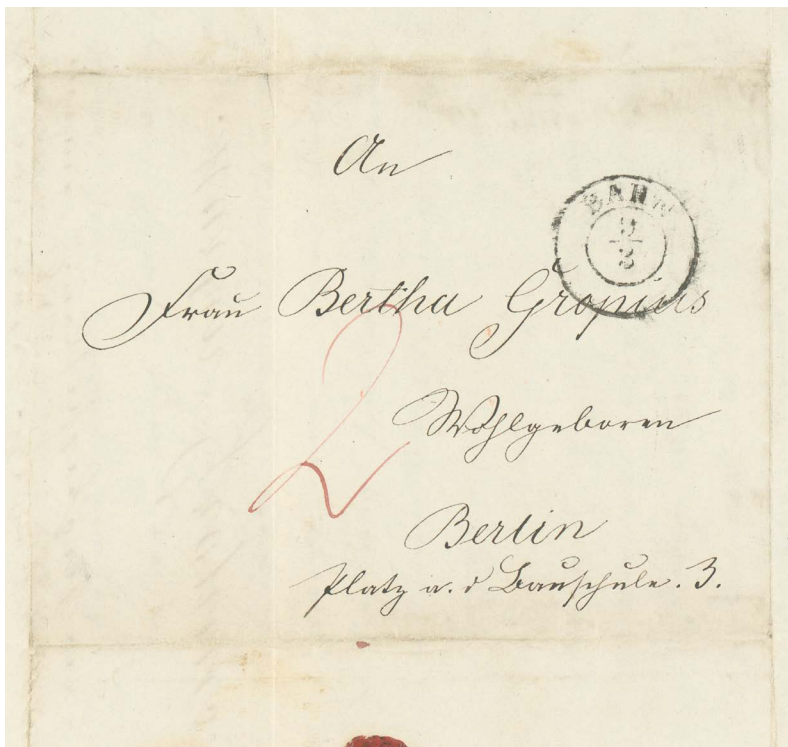 An
BAHN
9
2
Frau Bertha Gropius
2
Wohlgeboren
Berlin
Platz a. d Bauschule. 3.